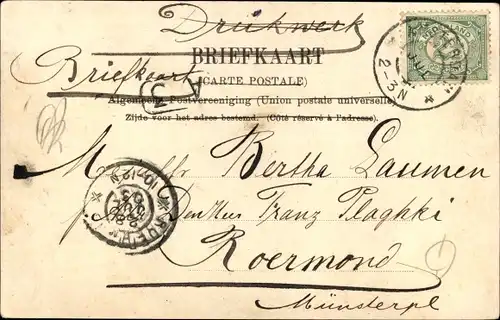 Drukwerk
BRIEFKAART
Briefkaart
(CARTE POSTALE)
Algemeene Postvereeniging (Union postale universelle)
Zijde voor het adres bestemd. (Côté réservé à l'adresse).
Bertha Laumen
Franz Plaghki
Roermond
Münsterpl